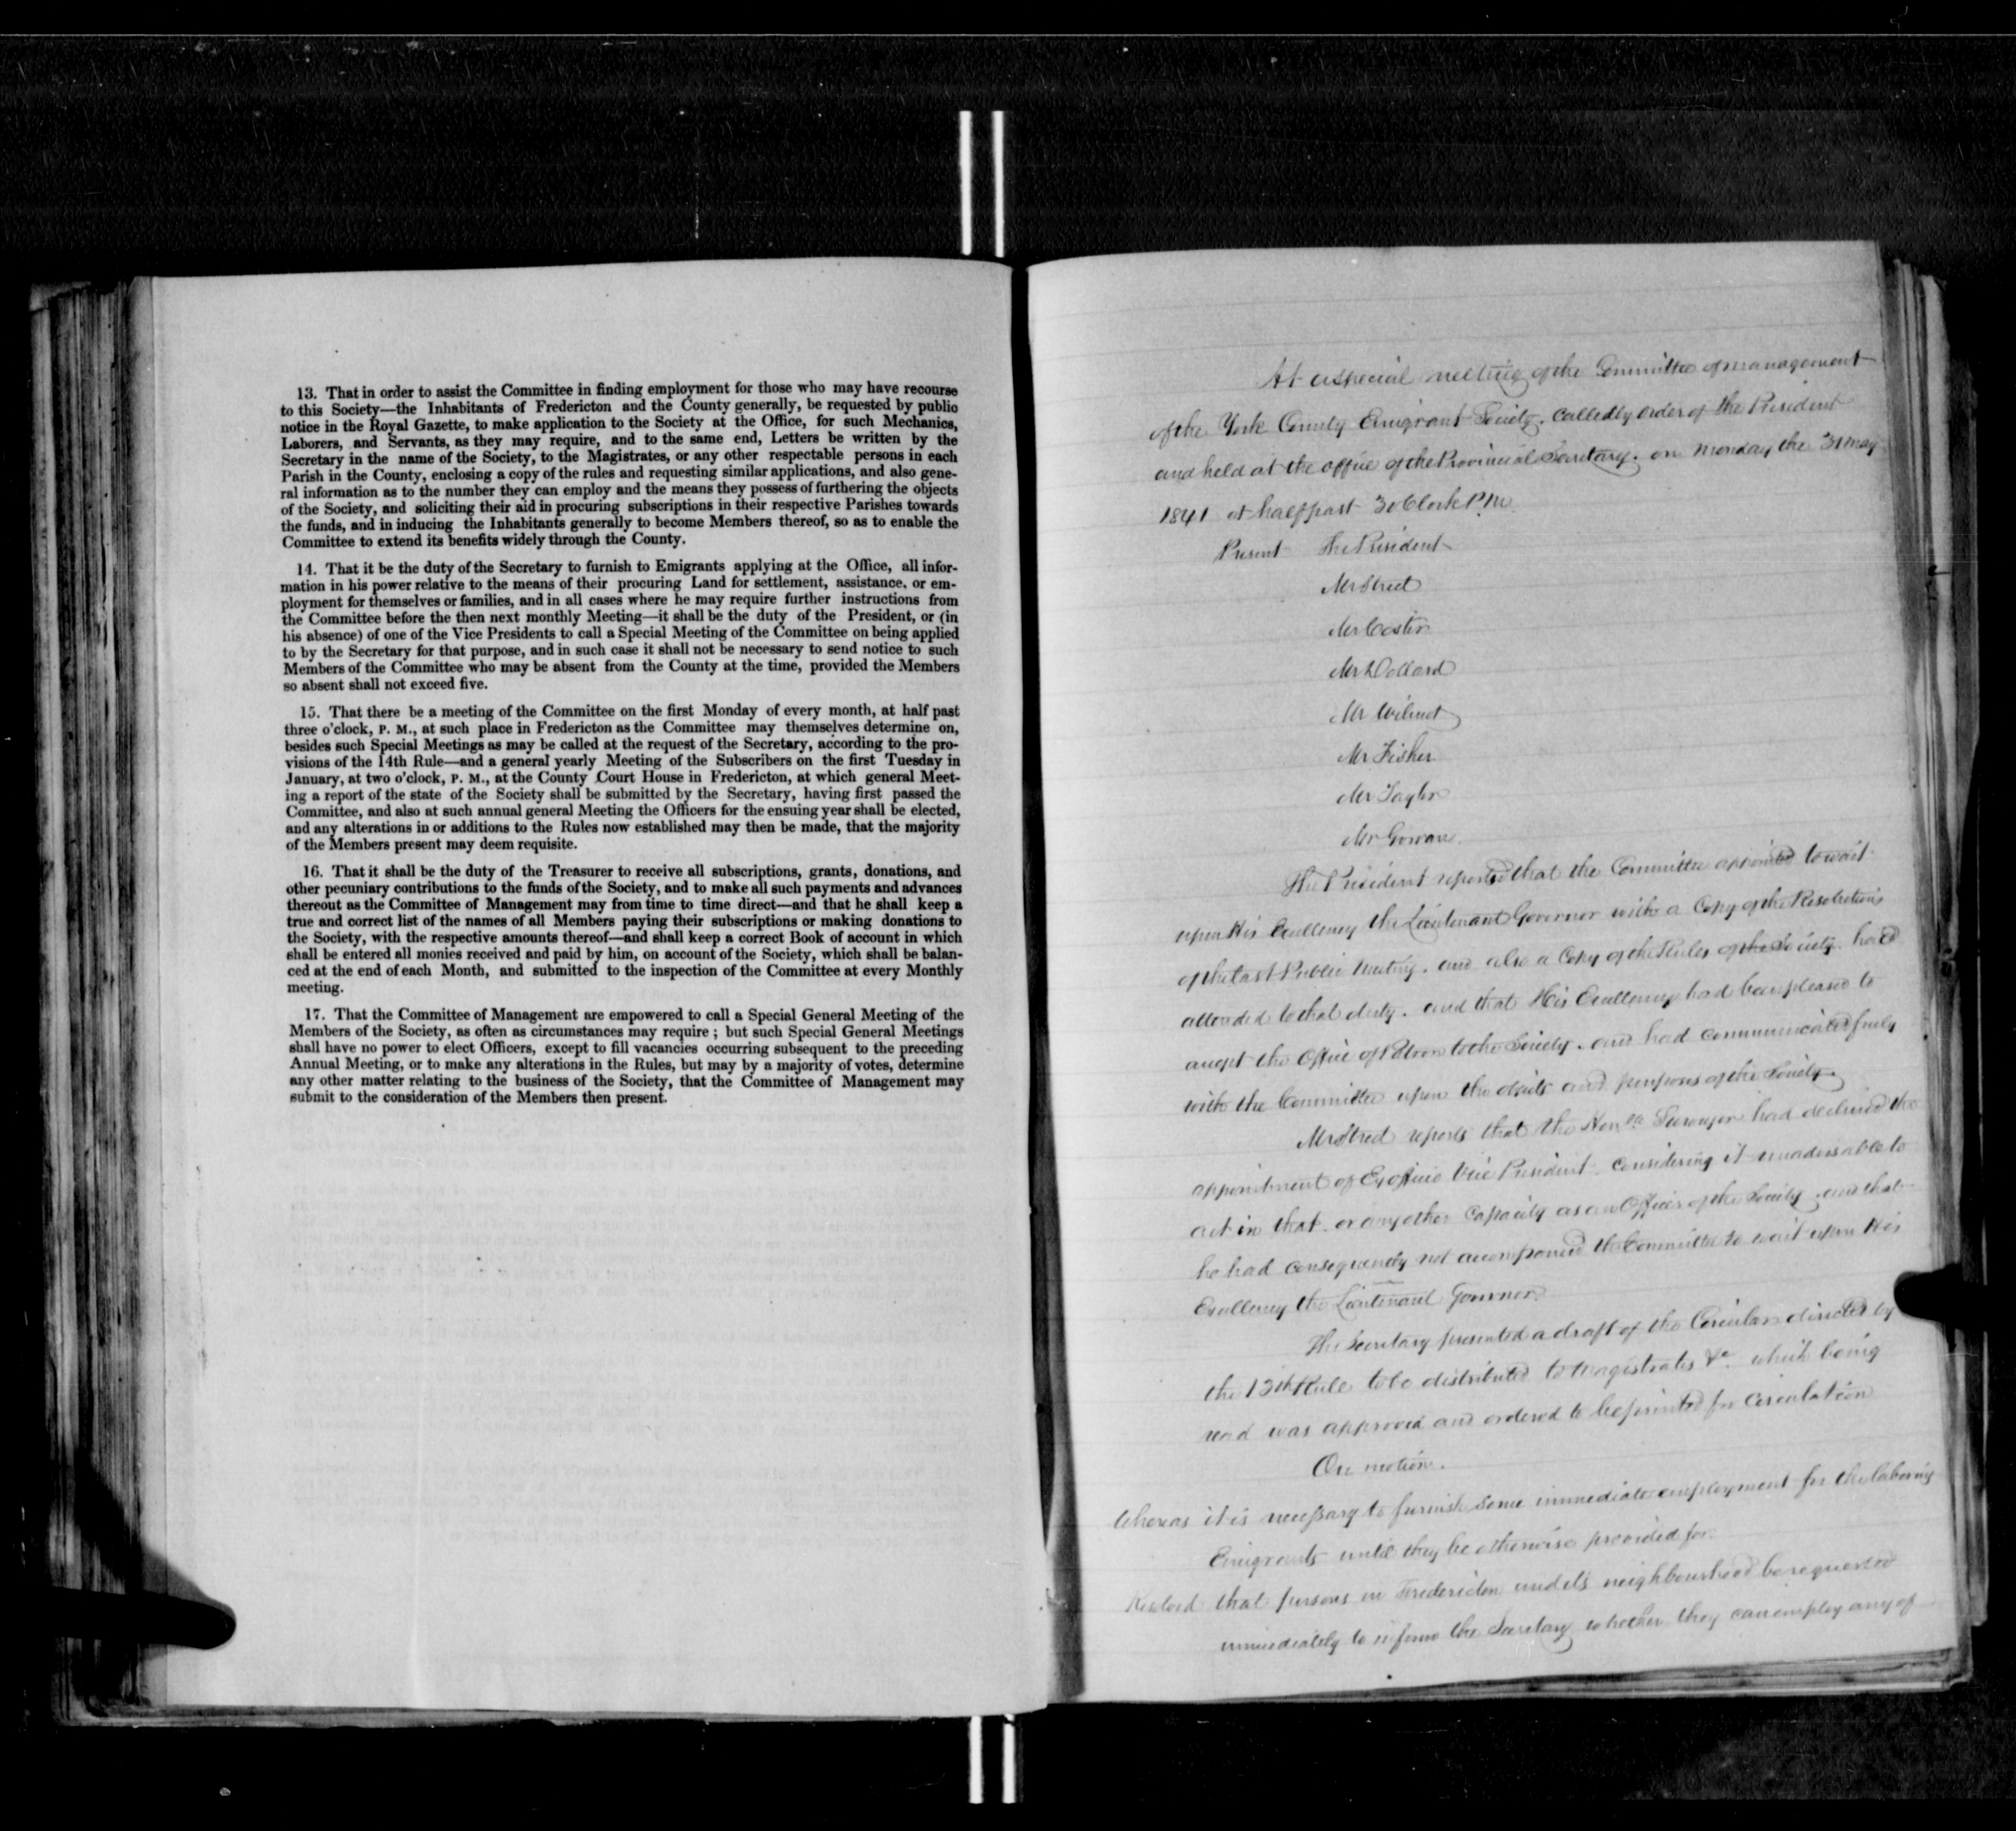 13. That in order to assist the Committee in finding employment for those who may have recourse
to this Society—the Inhabitants of Fredericton and the County generally, be requested by public
notice in the Royal Gazette, to make application to the Society at the Office, for such Mechanics,
Laborers, and Servants, as they may require, and to the same end, Letters be written by the
Secretary in the name of the Society, to the Magistrates, or any other respectable persons in each
Parish in the County, enclosing a copy of the rules and requesting similar applications, and also gene-
ral information as to the number they can employ and the means they possess of furthering the objects
of the Society, and soliciting their aid in procuring subscriptions in their respective Parishes towards
the funds, and in inducing the Inhabitants generally to become Members thereof, so as to enable the
Committee to extend its benefits widely through the County.
14. That it be the duty of the Secretary to furnish to Emigrants applying at the Office, all infor-
mation in his power relative to the means of their procuring Land for settlement, assistance, or em-
ployment for themselves or families, and in all cases where he may require further instructions from
the Committee before the then next monthly Meeting—it shall be the duty of the President, or (in
his absence) of one of the Vice Presidents to call a Special Meeting of the Committee on being applied
to by the Secretary for that purpose, and in such case it shall not be necessary to send notice to such
Members of the Committee who may be absent from the County at the time, provided the Members
so absent shall not exceed five.
15. That there be a meeting of the Committee on the first Monday of every month, at half past
three o'clock, P. M., at such place in Fredericton as the Committee may themselves determine on,
besides such Special Meetings as may be called at the request of the Secretary, according to the pro-
visions of the 14th Rule—and a general yearly Meeting of the Subscribers on the first Tuesday in
January, at two o'clock, P. M., at the County Court House in Fredericton, at which general Meet-
ing a report of the state of the Society shall be submitted by the Secretary, having first passed the
Committee, and also at such annual general Meeting the Officers for the ensuing year shall be elected,
and any alterations in or additions to the Rules now established may then be made, that the majority
of the Members present may deem requisite.
16. That it shall be the duty of the Treasurer to receive all subscriptions, grants, donations, and
other pecuniary contributions to the funds of the Society, and to make all such payments and advances
thereout as the Committee of Management may from time to time direct—and that he shall keep a
true and correct list of the names of all Members paying their subscriptions or making donations to
the Society, with the respective amounts thereof—and shall keep a correct Book of account in which
shall be entered all monies received and paid by him, on account of the Society, which shall be balan-
ced at the end of each Month, and submitted to the inspection of the Committee at every Monthly
meeting.
17. That the Committee of Management are empowered to call a Special General Meeting of the
Members of the Society, as often as circumstances may require ; but such Special General Meetings
shall have no power to elect Officers, except to fill vacancies occurring subsequent to the preceding
Annual Meeting, or to make any alterations in the Rules, but may by a majority of votes, determine
any other matter relating to the business of the Society, that the Committee of Management may
submit to the consideration of the Members then present.
At a special meeting of the Committee of management
of the York County Emigrant Society. called by order of the President
and held at the office of the Provincial Secretary. on Monday the 31 May
1841 at half past 3 oClock P.M.
Present The President
Mr Street
Mr Coster
Mr Dollard
Mr Wilmot
Mr Fisher
Mr Taylor
Mr Gowan.
The President reported that the Committee appointed to wait
upon His Excellency the Lieutenant Governor with a Copy of the Resolutions
of the last Public Meeting. and also a Copy of the Rules of the Society. had
attended to that duty. and that His Excellency had been pleased to
accept the Office of Patron to the Society. and had communicated freely
with the Committee upon the objects and purposes of the Society.
Mr Street reports that the Honble Surveyor had declined the
appointment of Ex officio Vice President. considering it unadvisable to
act in that. or any other capacity as an Officer of the Society. and that
he had consequently not accompanied the Committee to wait upon His
Excellency the Lieutenant Governor.
The Secretary presented a draft of the Circular directed by
the 13th Rule to be distributed to Magistrates &c. which being
read was approved and ordered to be printed for circulation
On motion.
Whereas it is necessary to furnish some immediate employment for the laboring
Emigrants until they be otherwise provided for.
Resolved that persons in Fredericton and its neighbourhood be requested
immediately to inform the Secretary whether they can employ any of